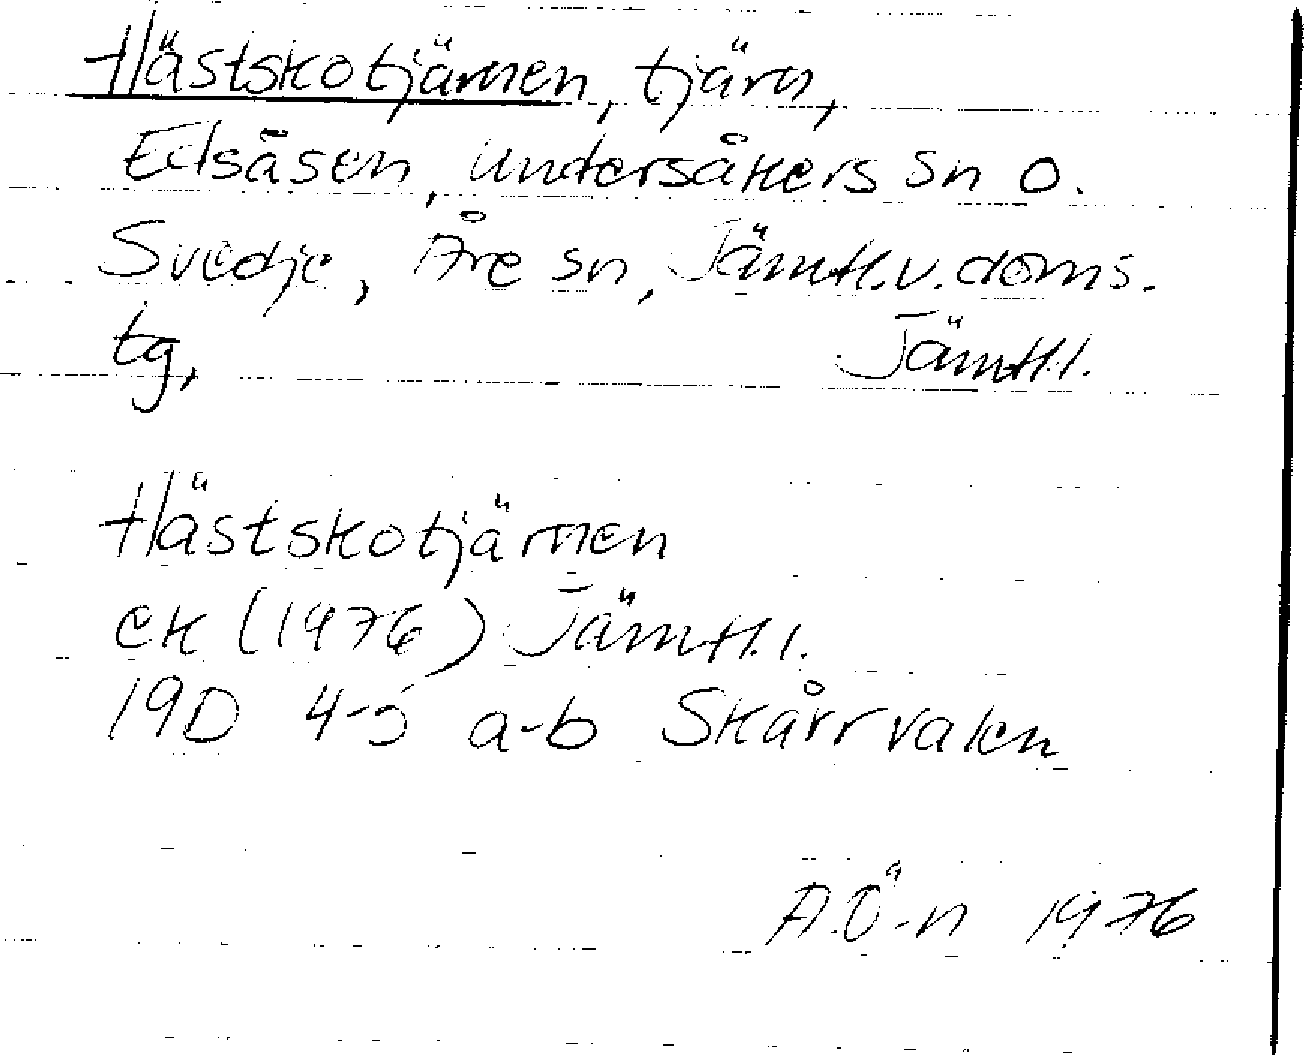 Hästskotjärnen, tjärn,
Edsåsen, Undersåkers sn o.
Svedje, Åre sn, Jämtl.v.doms.
tg, Jämtl.l.
Hästskotjärnen
ek (1976) Jämtl.l.
19D 4-5 a-b Skårrvalen
A.Ö-n 1976